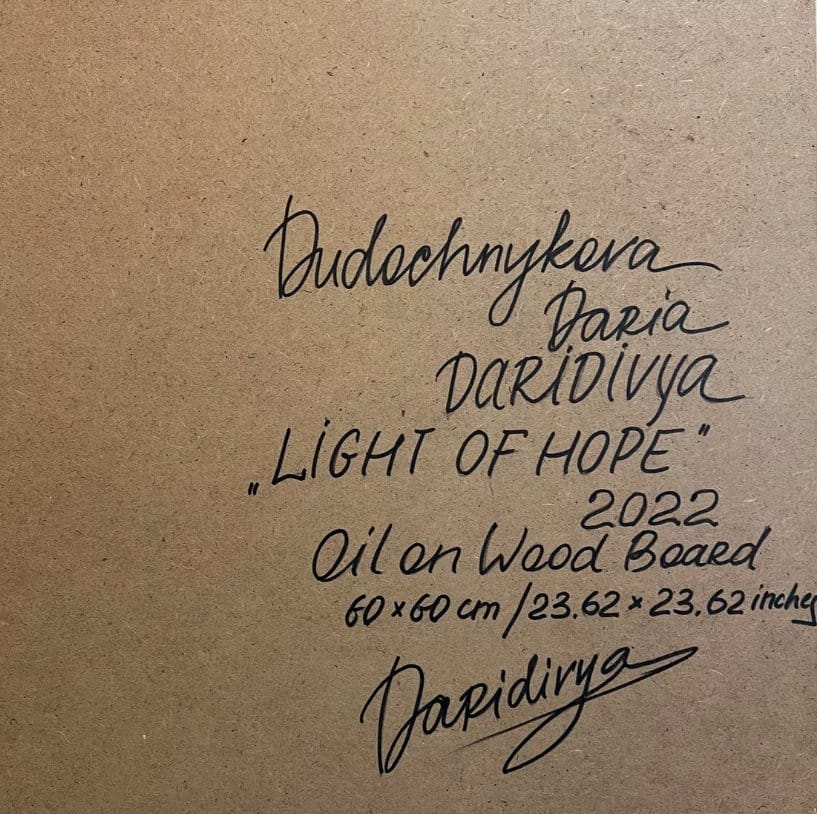 Dudochnykova
Daria
DARiDiVya
„LiGHT OF HOPE"
2022
Oil on Wood Board
60×60 cm / 23.62×23.62 inches
Daridivya